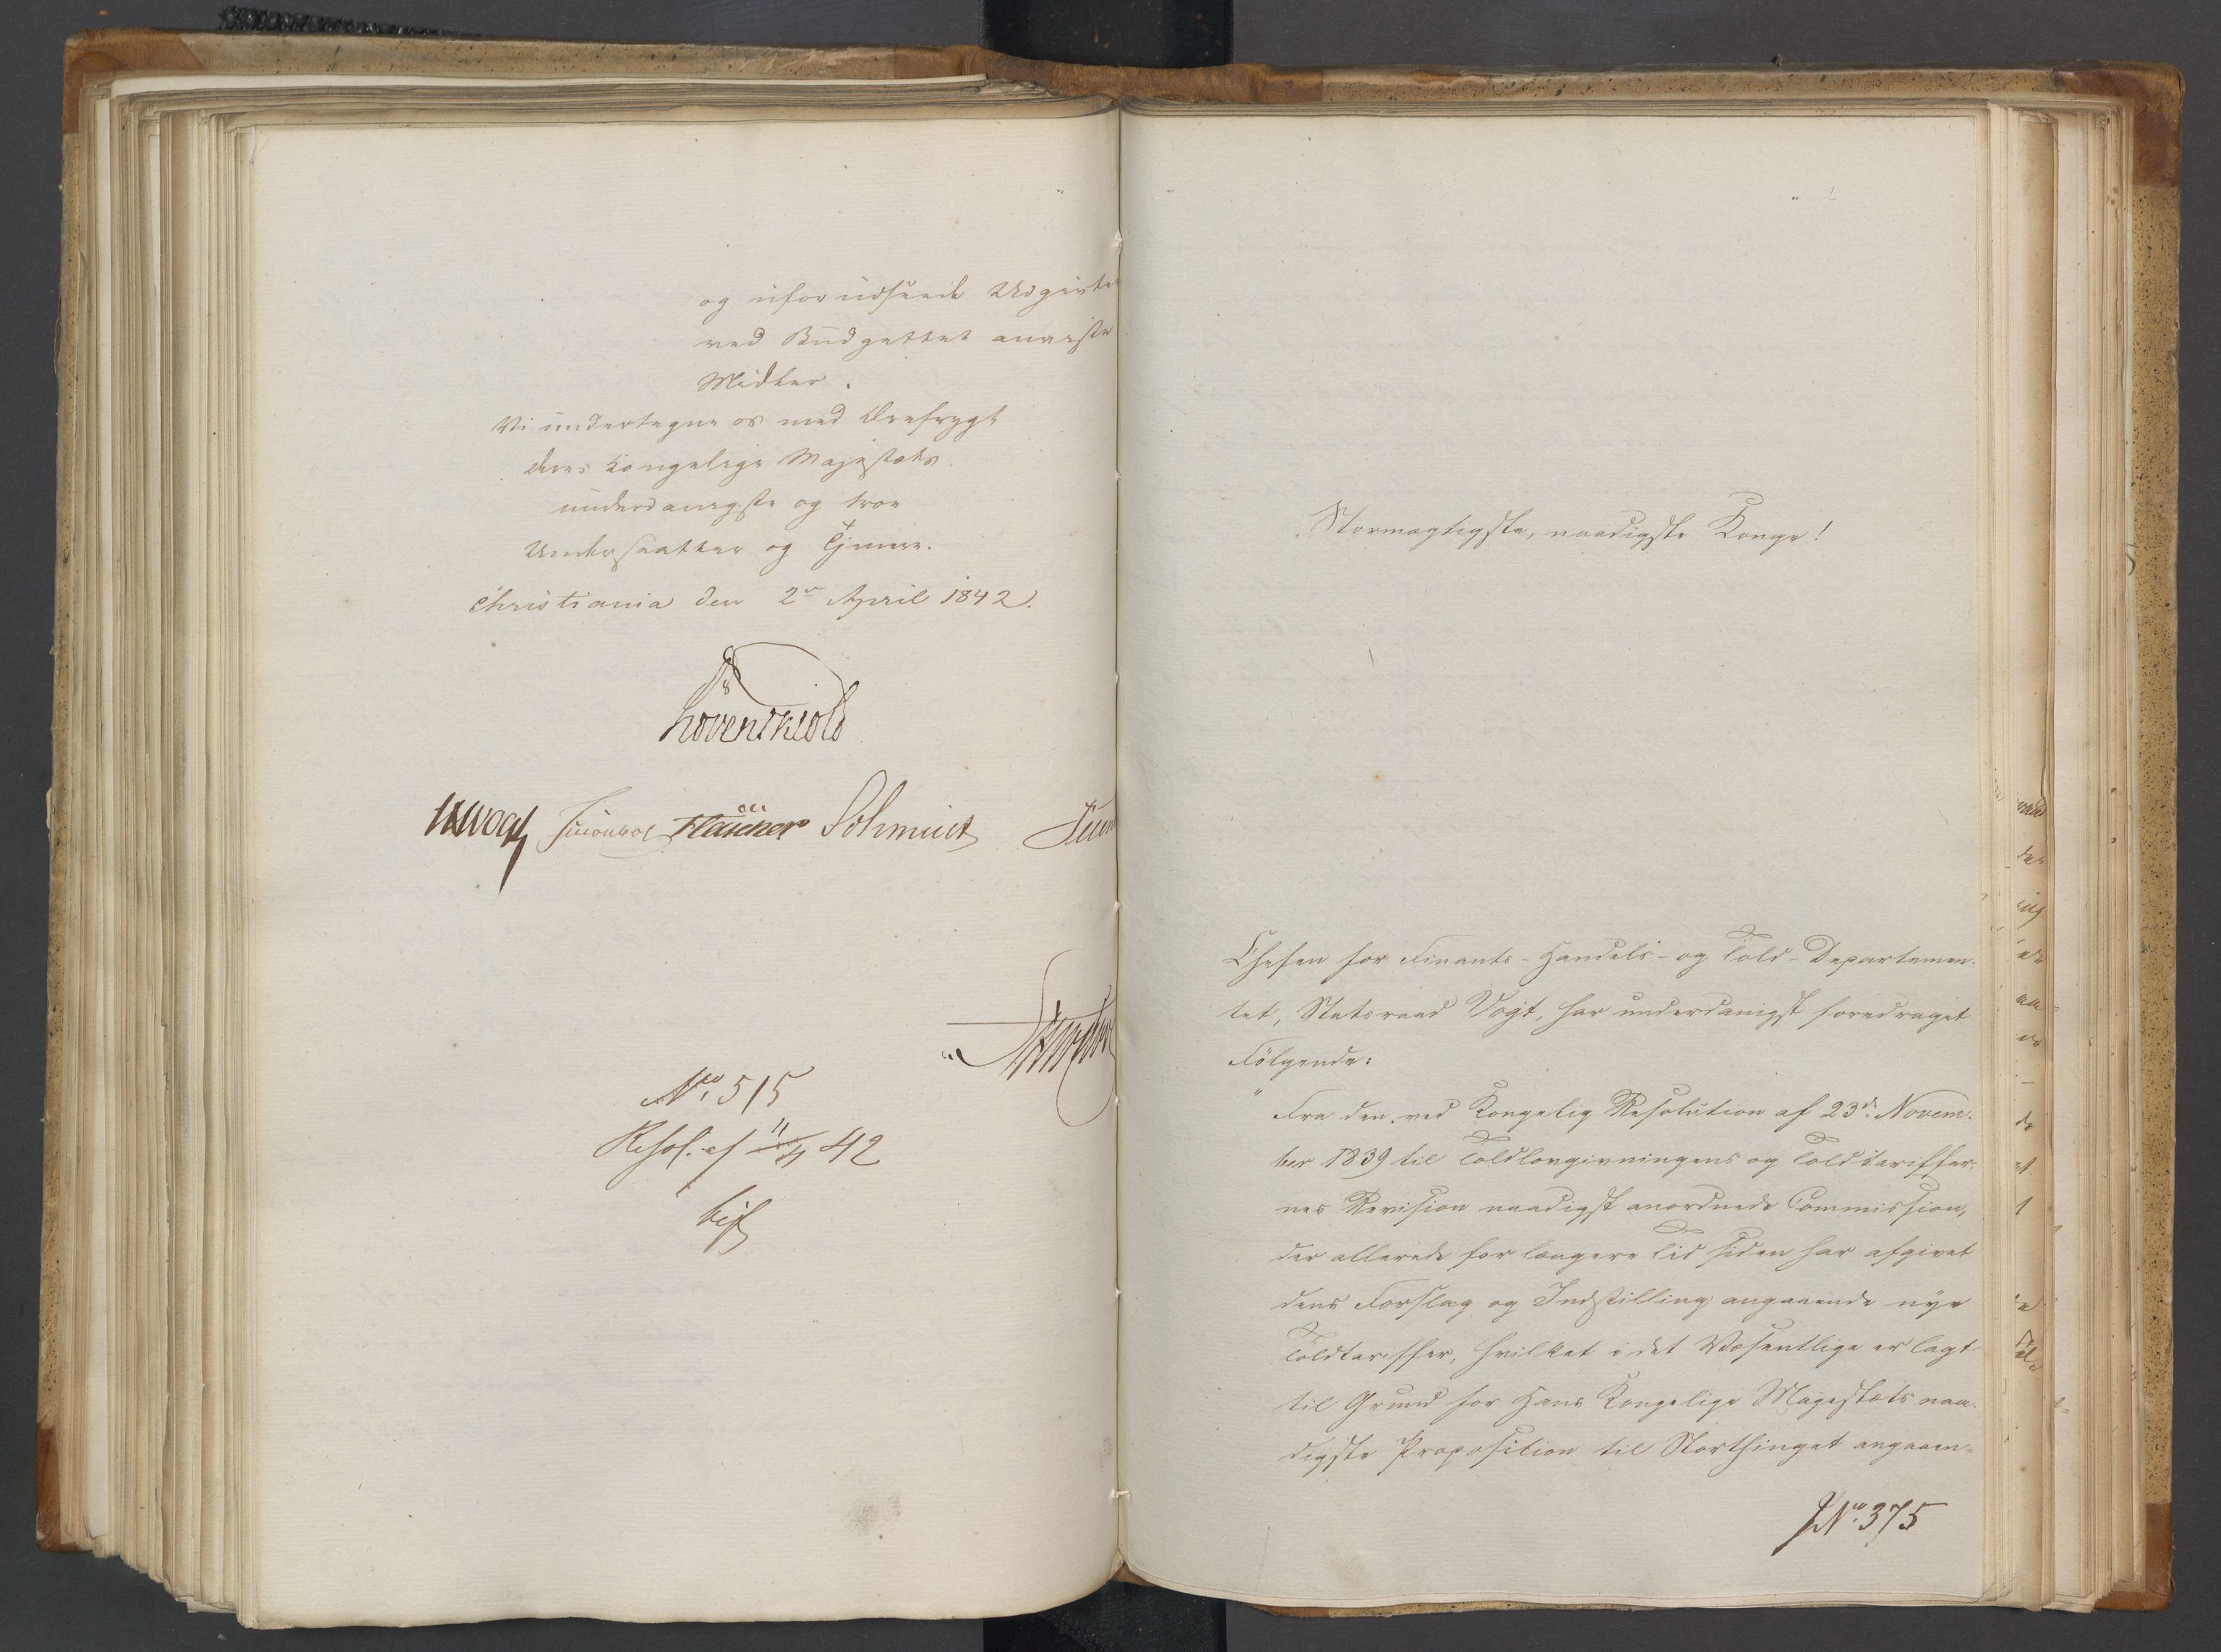 og uforudseede Udgivter
ved Budgettet anviste
Midler.
Vi undertegne os med Ærefrygt
Deres Kongelige Majestæts
underdanigste og troe
Undersaatter og Tjenere.
Christiania den 2den April 1842.
Løvenskiold
JHVogt Fasting Schmidt
No. 515
Resol. af 11/4 42
bif
Stormægtigste, naadigste Konge!
Chefen for Finants-Handels- og Told-Departemen-
tet, Statsraad Vogt, har underdanigst foredraget
Følgende:
"Fra den ved Kongelig Resolution af 23de Novem-
ber 1839 til Toldlovgivningens og Toldtariffer-
nes Revision naadigst anordnede Commission,
der allerede for længere Tid siden har afgivet
dens Forslag og Indstilling angaaende nye
Toldtariffer, hvilket i det Væsentlige er lagt
til Grund for Hans Kongelige Majestæts naa-
digste Proposition til Storthinget angaaen-
JNo. 375